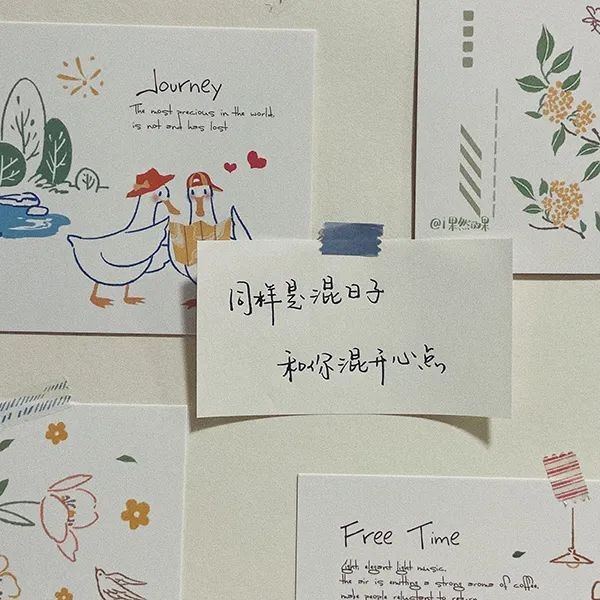 Journey
The most precious in the world,
is not and has lost
@1果然的果
同样是混日子
和你混开心点
Free Time
Light, elegant light music.
the air is emitting a strong aroma of coffee.
make people reluctant to retire